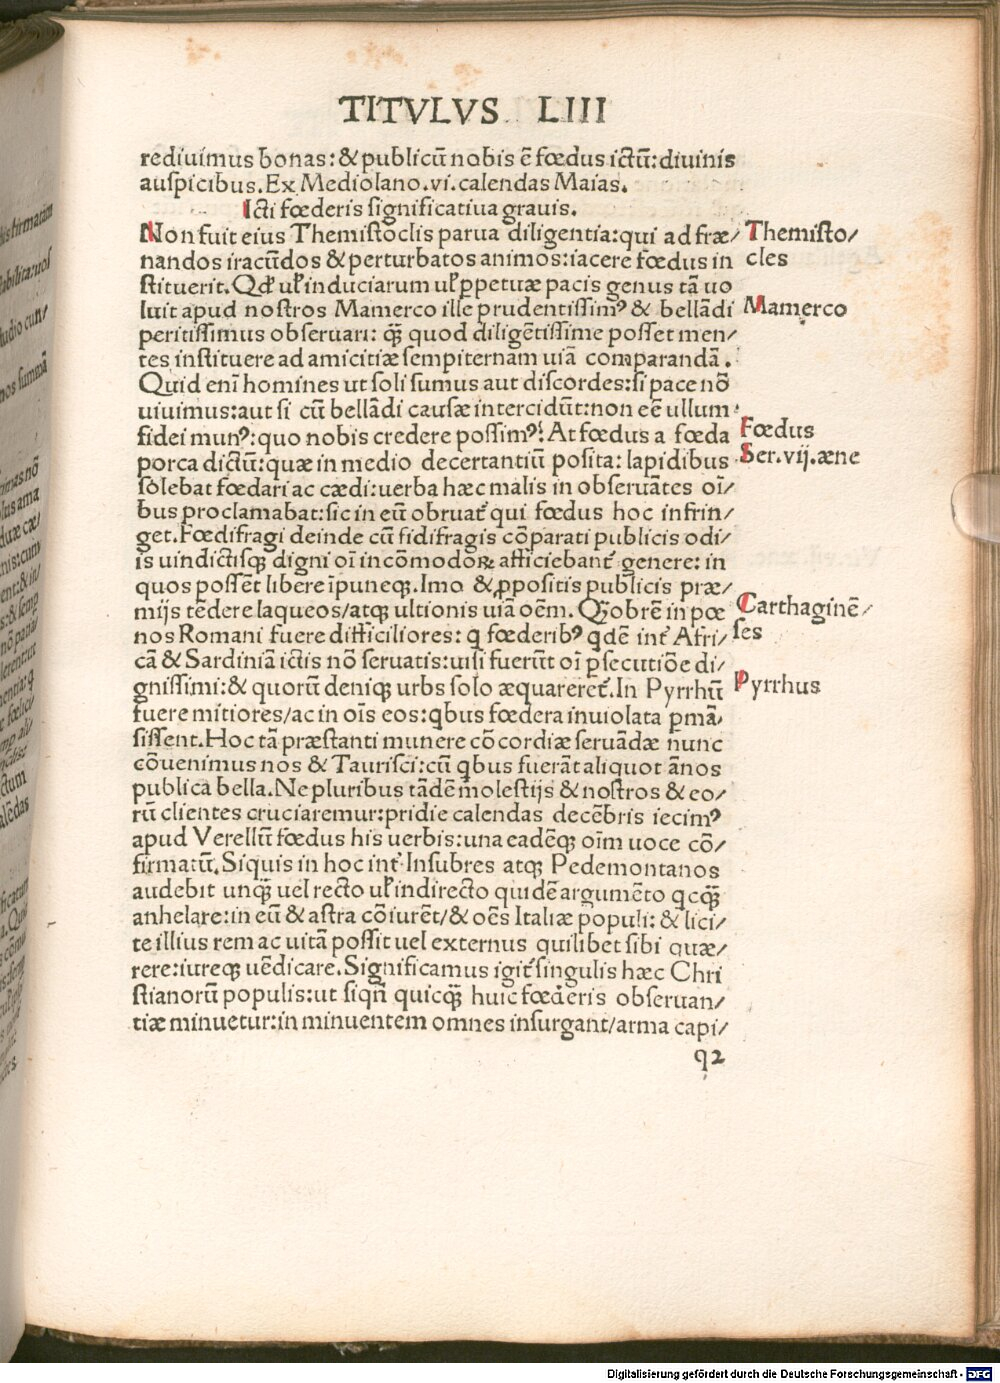 TITVLVS LIII
rediuimus bonas: & publicū nobis ē fœdus ictū: diuinis
auspicibus. Ex Mediolano. vi. calendas Maias.
Icti fœderis significatiua grauis.
Non fuit eius Themistoclis parua diligentia: qui ad fræ/
nandos iracūdos & perturbatos animos: iacere fœdus in
stituerit. Qđ uł induciarum uł ꝑpetuæ pacis genus tā uo
luit apud nostros Mamerco ille prudentissimꝰ & bellādi
peritissimus obseruari: q̄ꝫ quod diligētissime posset men/
tes instituere ad amicitiæ sempiternam uiā comparandā.
Quid enī homines ut soli sumus aut discordes: si pace nō
uiuimus: aut si cū bellādi causæ intercidūt: non eē ullum
fidei munꝰ: quo nobis credere possimꝰ? At fœdus a fœda
porca dictū: quæ in medio decertantiū posita: lapidibus
solebat fœdari ac cædi: uerba hæc malis in obseruātes oī/
bus proclamabat: sic in eū obruat᷑ qui fœdus hoc infrin/
get. Fœdifragi deinde cū fidifragis cōparati publicis odi/
is uindictisqꝫ digni oī incōmodoꝝ afficiebant᷑ genere: in
quos possēt libere īpuneqꝫ. Imo & ꝓpositis publicis præ/
mijs tēdere laqueos/atqꝫ ultionis uiā oēm. Qꝫobrē in pœ
nos Romani fuere difficiliores: ꝗ fœderibꝰ ꝗdē int᷑ Afri/
cā & Sardiniā ictis nō seruatis: uisi fuerūt oī ꝑsecutiōe di/
gnissimi: & quorū deniqꝫ urbs solo æquareret᷑. In Pyrrhū
fuere mitiores/ac in oīs eos: ꝗbus fœdera inuiolata ꝑmā/
sissent. Hoc tā præstanti munere cōcordiæ seruādæ nunc
cōuenimus nos & Taurisci: cū ꝗbus fuerāt aliquot ānos
publica bella. Ne pluribus tādē molestijs & nostros & eo/
rū clientes cruciaremur: pridie calendas decēbris iecimꝰ
apud Verellū fœdus his uerbis: una eadēqꝫ oīm uoce cō/
firmatū. Siquis in hoc int᷑ Insubres atqꝫ Pedemontanos
audebit unq̄ꝫ uel recto uł indirecto quidē argumēto ꝗcq̄ꝫ
anhelare: in eū & astra cōiurēt/& oēs Italiæ populi: & lici/
te illius rem ac uitā possit uel externus quilibet sibi quæ/
rere: iureqꝫ uēdicare. Significamus igit᷑ singulis hæc Chri
stianorū populis: ut siqñ quicq̄ꝫ huic fœderis obseruan/
tiæ minuetur: in minuentem omnes insurgant/arma capi/
q2
Themisto/
cles
Mamerco
Fœdus
Ser. vij. æne
Carthaginē/
ses
Pyrrhus
Digitalisierung gefördert durch die Deutsche Forschungsgemeinschaft - DFG